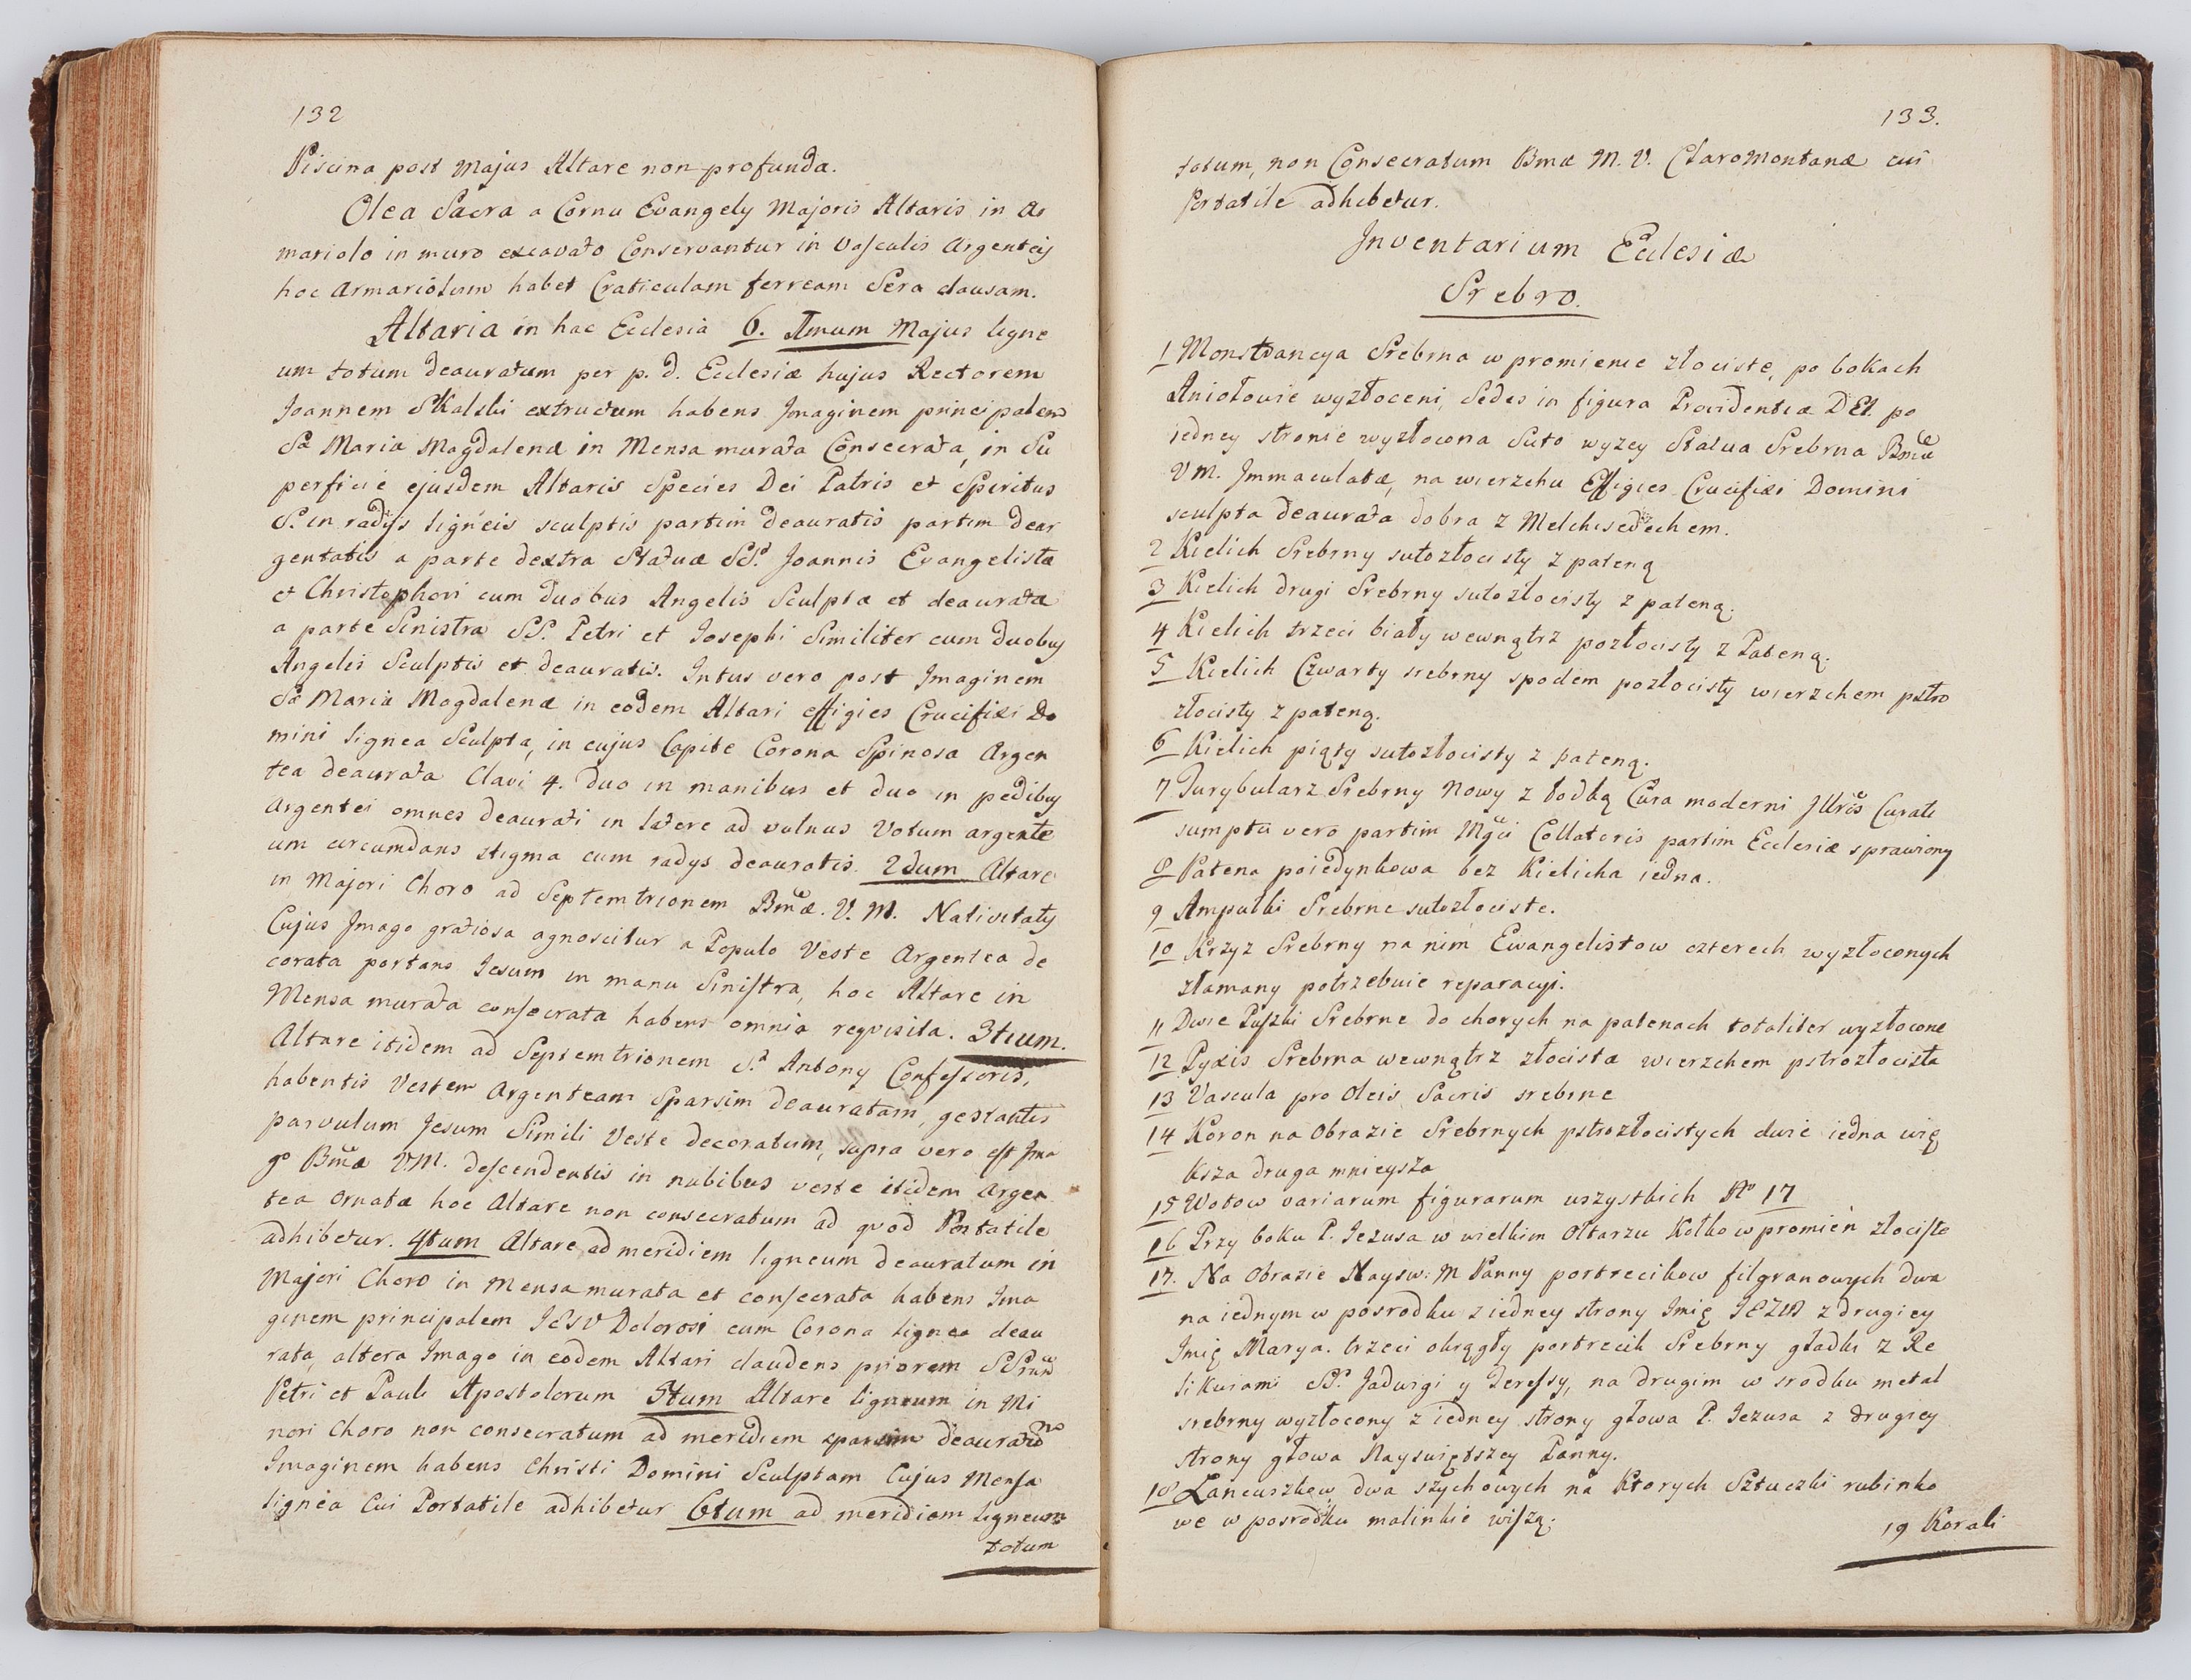 132
Piscina post Majus Altare non profunda.
Olea Sacra a Cornu Evangely Majoris Altaris in Ar
mariolo in muro excavato Conservantur in Vasculis Argenteis
hoc Armariolum habet Craticulam ferream Sera clausam.
Altaria in hac Ecclesia 6. Imum Majus ligne
um totum deauratum per p. d. Ecclesiæ hujus Rectorem
Joannem Skalski extructum habens Imaginem principalem
Sæ Maria Magdalenæ in Mensa murata Consecrata, in Su
perficie ejusdem Altaris Species Dei Patris et Spiritus
S. in radys ligneis sculptis partim deauratis partim dear
gentatis a parte dextra Statuæ SS. Joannis Evangelistæ
et Christophori cum duobus Angelis Sculptæ et deauratæ
a parte Sinistra SS. Petri et Josephi Similiter cum duobus
Angelis Sculptis et deauratis. Intus vero post Imaginem
Sæ Maria Magdalenæ in eodem Altari effigies Crucifixi Do
mini lignea Sculpta, in cujus Capite Corona Spinosa Argen
tea deaurata Clavi 4. duo in manibus et duo in pedibus
Argentei omnes deaurati in latere ad vulnus Votum argente
um circumdans stigma cum radys deauratis. 2dum Altare
in Majori Choro ad Septemtrionem Bmæ. V. M. Nativitatis
Cujus Imago gratiosa agnoscitur a Populo Veste Argentea de
corata portans Jesum in manu Sinistra, hoc Altare in
Mensa murata consecrata habens omnia reqvisita. 3tium.
Altare itidem ad Septemtrionem S. Antony Confessoris,
habentis Vestem Argenteam Sparsim deauratam, gestantis
parvulum Jesum Simili Veste decoratum, supra vero est Ima
go Bmæ VM. descendentis in nubibus veste itidem Argen
tea ornatæ hoc Altare non consecratum ad qvod Portatile
adhibetur. 4tum Altare ad meridiem ligneum deauratum in
Majori Choro in Mensa murata et consecrata habens Ima
ginem principalem JESV Dolorosi cum Corona lignea deau
rata, altera Imago in eodem Altari claudens priorem SS
Petri et Pauli Apostolorum 5tum Altare ligneum in Mi
nori Choro non consecratum ad meridiem sparsim deaurato
Imaginem habens Christi Domini Sculptam Cujus Mensa
lignea Cui Portatile adhibetur 6tum ad meridiem ligneum
totum
133.
totum, non Consecratum Bmæ M. V. Claromontanæ cui
Portatile adhibetur.
Inventarium Ecclesiæ
Srebro.
1 Monstrancya Srebrna w promienie złociste, po bokach
Aniołowie wyzłoceni, Sedes in figura Providentiæ DEI. po
iedney stronie wyzłocona Suto wyzey Statua Srebrna Bmæ
VM. Immaculatæ, na wierzchu Effigies Crucifixi Domini
sculpta deaurata dobra z Melchisedechem.
2 Kielich Srebrny sutozłocisty z pateną
3 Kielich drugi Srebrny sutozłocisty z pateną.
4 Kielich trzeci biały wewnątrz pozłocisty z Pateną.
5 Kielich Czwarty srebrny spodem pozłocisty wierzchem pstro
złocisty z pateną.
6 Kielich piąty sutozłocisty z pateną.
7 Turybularz Srebrny Nowy z łodką Cura moderni Illris Curati
sumptu vero partim Mgci Collatoris partim Ecclesiæ sprawiony
8 Patena poiedynkowa bez Kielicha iedna.
9 Ampułki Srebrne sutozłociste.
10 Krzyz Srebrny na nim Ewangelistow czterech wyzłoconych
złamany potrzebuie reparacyi.
11 Dwie Puszki Srebrne do chorych na patenach totaliter wyzłocone
12 Pyxis Srebrna wewnątrz złocista wierzchem pstrozłocista
13 Vascula pro Oleis Sacris srebrne
14 Koron na Obrazie Srebrnych pstrozłocistych dwie iedna wię
ksza druga mnieysza
15 Wotow variarum figurarum wszystkich No 17
16 Przy boku P. Jezusa w wielkim Ołtarzu Kołko w promień złociste
17. Na Obrazie Naysw: M Panny portrecikow filgranowych dwa
na iednym w posrodku z iedney strony Imię JEZUS z drugiey
Imię Marya. trzeci okrągły portrecik Srebrny gładki z Re
likwiami SS. Jadwigi y Teressy, na drugim w srodku metal
srebrny wyzłocony z iedney strony głowa P. Jezusa z drugiey
strony głowa Nayswiętszey Panny.
18 Łancuszkow dwa szychowych na Ktorych Sztuczki rubinko
we w posrodku malinkie wiszą.
19 Korali